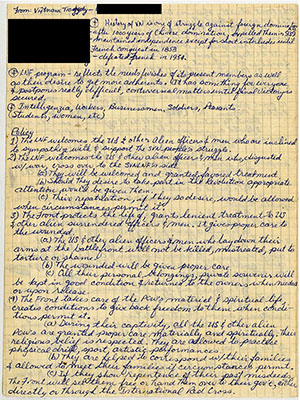 From: Vietnam Tragedy-
History of VN is one of struggle against foreign domination
after 1000 years of Chinese domination, expelled them in 939
maintained independence except for short interludes until
French conquest in 1858
- defeated French in 1954.
NLF program - reflect the needs & wishes of its present members as well
as their desire to get more adherents. Let has something for everyone
& postpones really difficult, controversial matters until final victory is
secured
(Intelligenzia, Workers, Businessmen, Soldiers, Peasants
Students, women, etc)
Policy
1) The NLF welcomes the US & other alien officers & men who are inclined
to sympathize with & support the SVN people's struggle.
2) The NLF welcomes the US & other alien officers & men who, disgusted
w/ war, cross over to the side
(a) They will be welcomed and granted favored treatment
(b) Should they desire to take part in the Revolution appropriate
attention would be given them.
(c) Their repatriation, if they so desire, would be allowed
when circumstances permit it.
3) The Front protects the life of, grants lenient treatment to US
& other alien surrendered officers & men. It gives proper care to
the wounded.
(a) The US & other alien officers & men who lay down their
arms at the battlefront will not be killed, mistreated, put to
torture or shame.
(b) The wounded will be given proper care
(c) All their personal belongings, private souvenirs will
be kept in good condition & returned to the owners when needed
or upon release.
4) The Front takes care of the PoWs material & spiritual life
creates conditions to give back freedom to them when condi-
tions permit.
(a) During their captivity all the US & other alien
PoWs are granted proper care materially and spiritually, their
religious belief is respected. They are allowed to practise
physical drill, sport, artistic performances.
(b) They are helped to correspond w/ their families
& allowed to meet their families if circumstances permit.
(c) If they show repentance of their past misdeeds,
The Front will set them free or hand them over to their gov't, either
directly or through the International Red Cross.